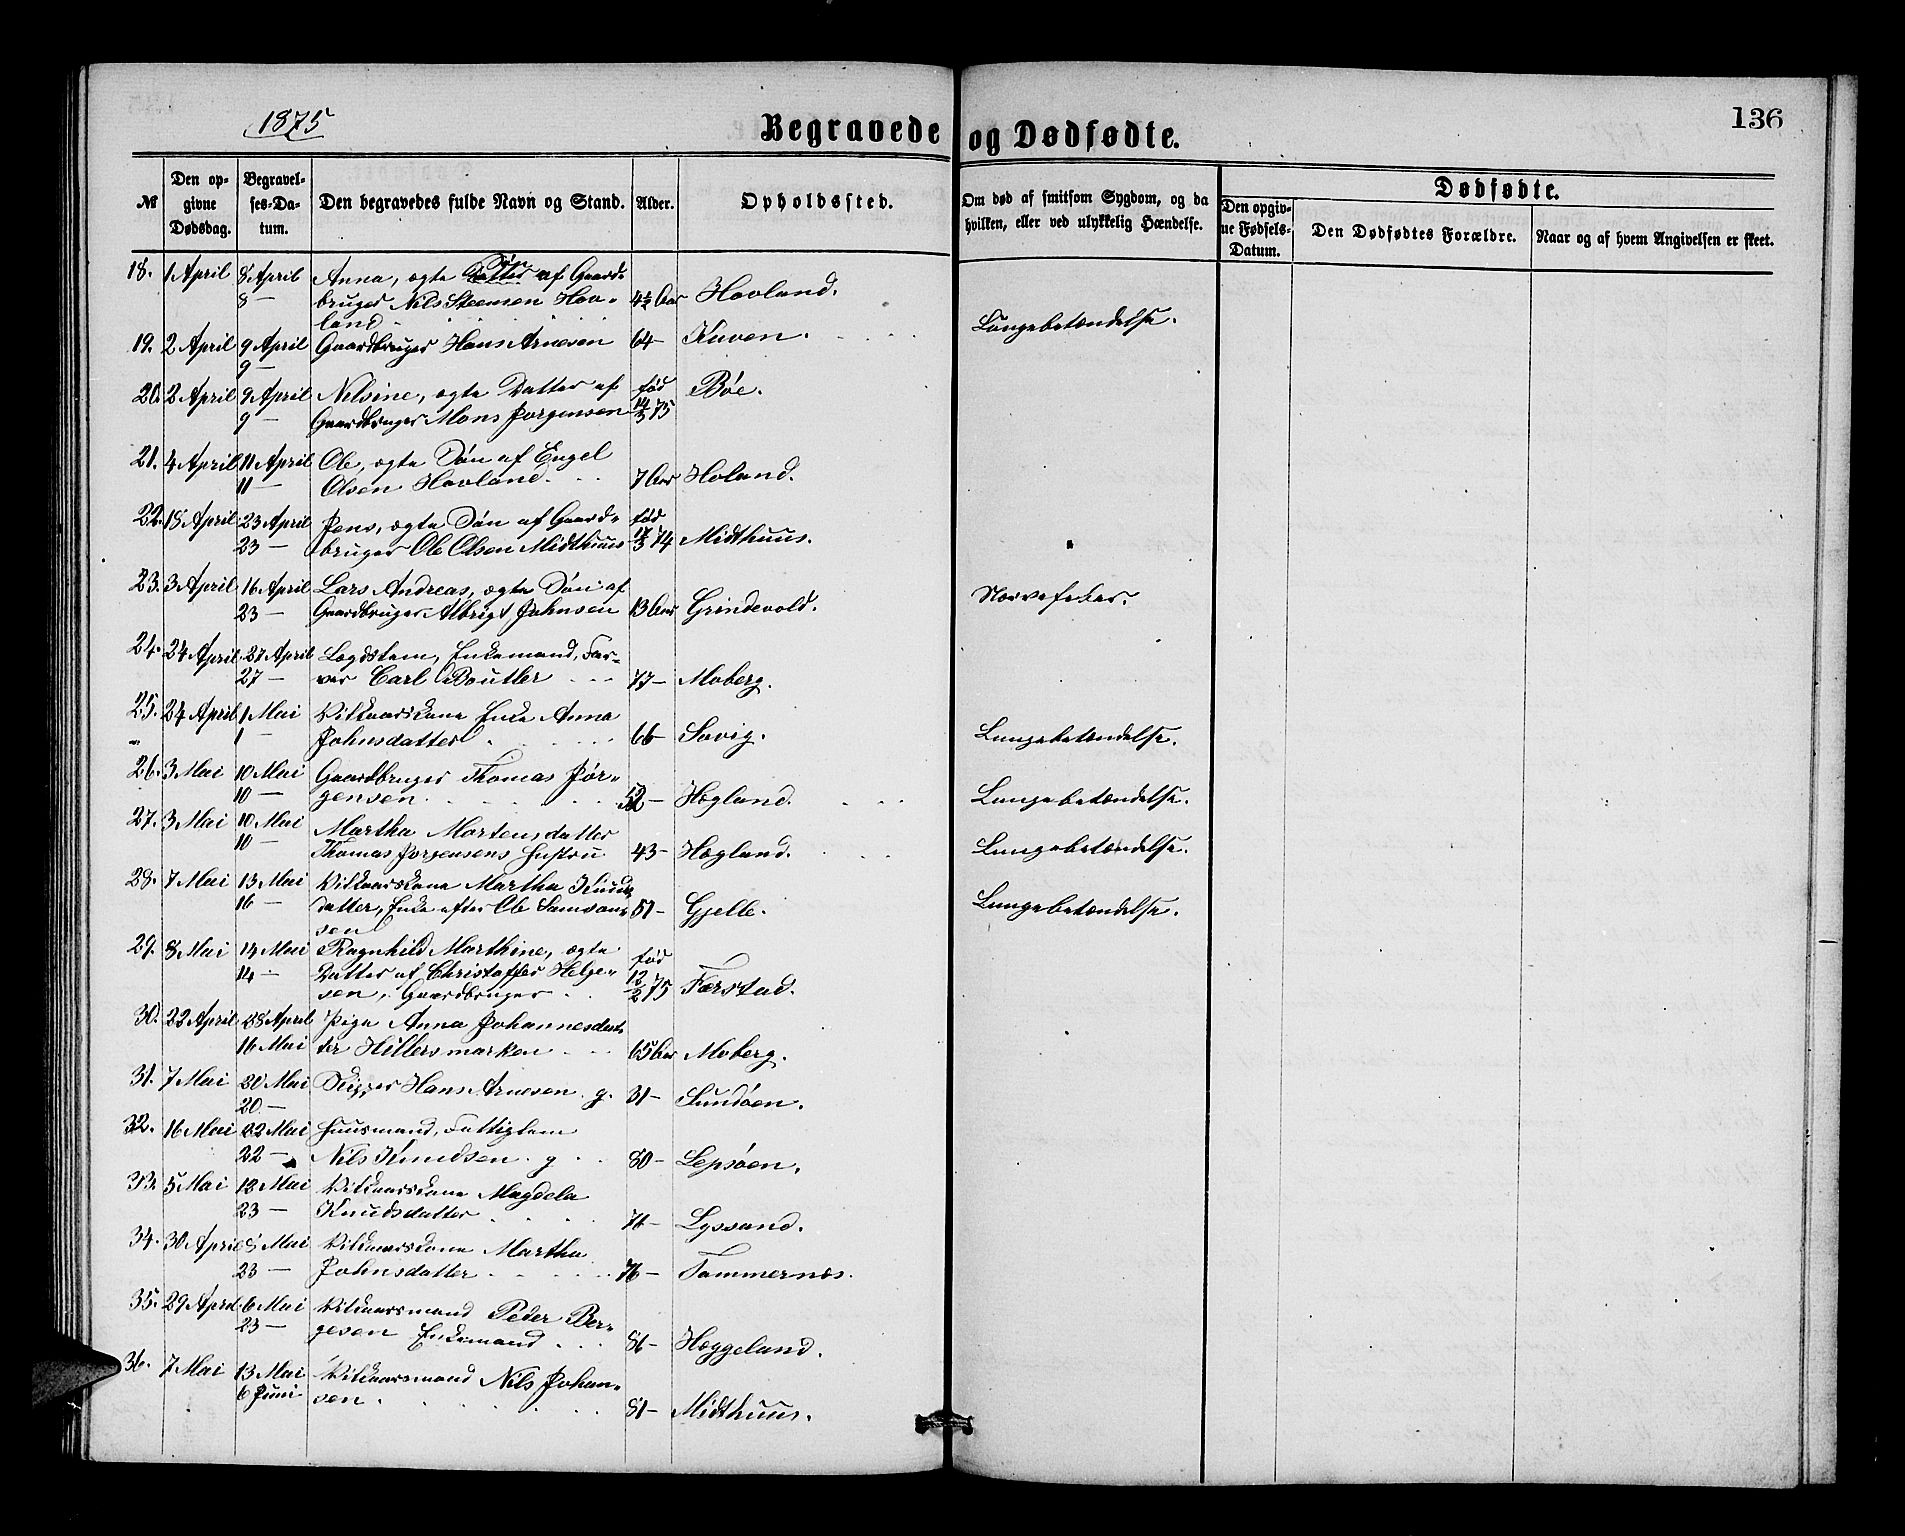 1875
Begravede og Dødfødte.
136
№
Den op-
givne
Dødsdag.
Begravel-
ses-Da-
tum.
Den begravedes fulde Navn og Stand.
Alder.
Opholdssted.
Om død af smitsom Sygdom, og da
hvilken, eller ved ulykkelig Hændelse.
Dødfødte.
Den opgiv-
ne Fødsels-
Datum.
Den Dødfødtes Forældre.
Naar og af hvem Angivelsen er skeet.
18. 1 April 8 April Anna, ægte Datter af Gaard-
8 — bruger Nils Steensen Hov- 4½ Aar Hovland.
land.
19. 2 April 9 April Gaardbruger Hans Arnesen 64 — Kuven. Lungebetændelse.
9 —
20. 2 April 9 April Nilsine, ægte Datter af fød Bøe.
9 — Gaardbruger Mons Jørgensen 14/3 75
21. 4 April 11 April Ole, ægte Søn af Engel
11 — Olsen Hovland. 7 Aar Holand.
22. 15 April 23 April Jens, ægte Søn af Gaard- fød
23 — bruger Ole Olsen Midthuus 17/3 74 Midthuus.
23. 3 April 16 April Lars Andreas, ægte Søn af
23 — Gaardbruger Albrigt Johnsen 13 Aar Grindevold. Nervefeber.
24. 24 April 27 April Lægdslem, Enkemand, Far-
27 — ver Carl Boutler 77 — Moberg.
25. 24 April 1 Mai Vilkaarskone Enke Anna
1 — Johnsdatter 66 — Søvig. Lungebetændelse.
26. 3 Mai 10 Mai Gaardbruger Thomas Jør-
10 — gensen. 52 — Hægland. Lungebetændelse.
27. 3 Mai 10 Mai Martha Mortensdatter
10 — Thomas Jørgensens Hustru 43 — Hægland. Lungebetændelse.
28. 7 Mai 13 Mai Vilkaarskone Martha Knuds-
16 — datter, Enke efter Ole Samson- 57 — Gjelle. Lungebetændelse.
sen
29. 8 Mai 14 Mai Ragnhild Marthine, ægte fød
14 — Datter af Christoffer Helge- 12/2 75 Færstad.
sen, Gaardbruger
30. 22 April 28 April Pige Anna Johannesdat-
16 Mai ter Hillersmarken 65 Aar Moberg.
31. 7 Mai 20 Mai Skipper Hans Arnesen g. 31 — Sundøen.
20 —
32. 16 Mai 22 Mai Huusmand, Fattiglem
22 — Nils Knudsen g 80 — Lepsøen.
33. 5 Mai 13 Mai Vilkaarskone Magdela
23 — Knudsdatter 71 — Lyssand.
34. 30 April 8 Mai Vilkaarskone Martha
23 — Johnsdatter 76 — Tømmernæs.
35. 29 April 6 Mai Vilkaarsmand Peder Bør-
23 — gesen Enkemand 86 — Hæggeland.
36. 7 Mai 13 Mai Vilkaarsmand Nils Johan-
6 Juni sen. 81 — Midthuus.